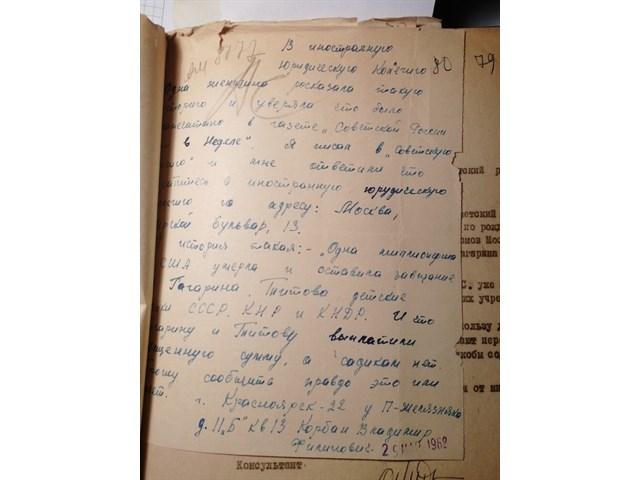 В иностранную
юридическую Колегию 80 79
Одна женщина росказала такую
торию и уверяла что было
печатано в газете „Советской России
в Неделе". Я писал в „Советскую
и мне ответили что
титесь в иностранную юрудическую
легию по адресу: Москва,
рской бульвар, 13.
история такая:- „Одна миллионерша
США умерла и оставила завещание
Гагарина, Титова, детские
СССР, КНР и КНДР. И что
гарину и Титову выплатили
щенную сумму, а садикам нет.
рошу сообщить правдо это или
нет.
г. Красноярск-22 у П-Железняка
д. 11„Б" кв 13 Корбан Владимир
Филипович.
1962
етский
по рожд
Мос
агарина
С. уже
их учре
ользу
ают пер
кобы со
и от
Консультант